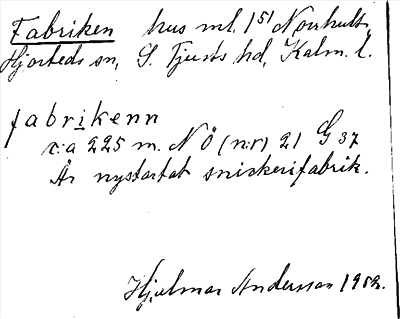 Fabriken hus ml. 1⁵¹ Norrhult,
Hjorteds sn, S. Tjusts hd, Kalm. l.
fabrikenn
c:a 225 m. NÖ (n:r) 21 G 37
Är nystartat snickerifabrik.
Hjalmar Andersson 1952.